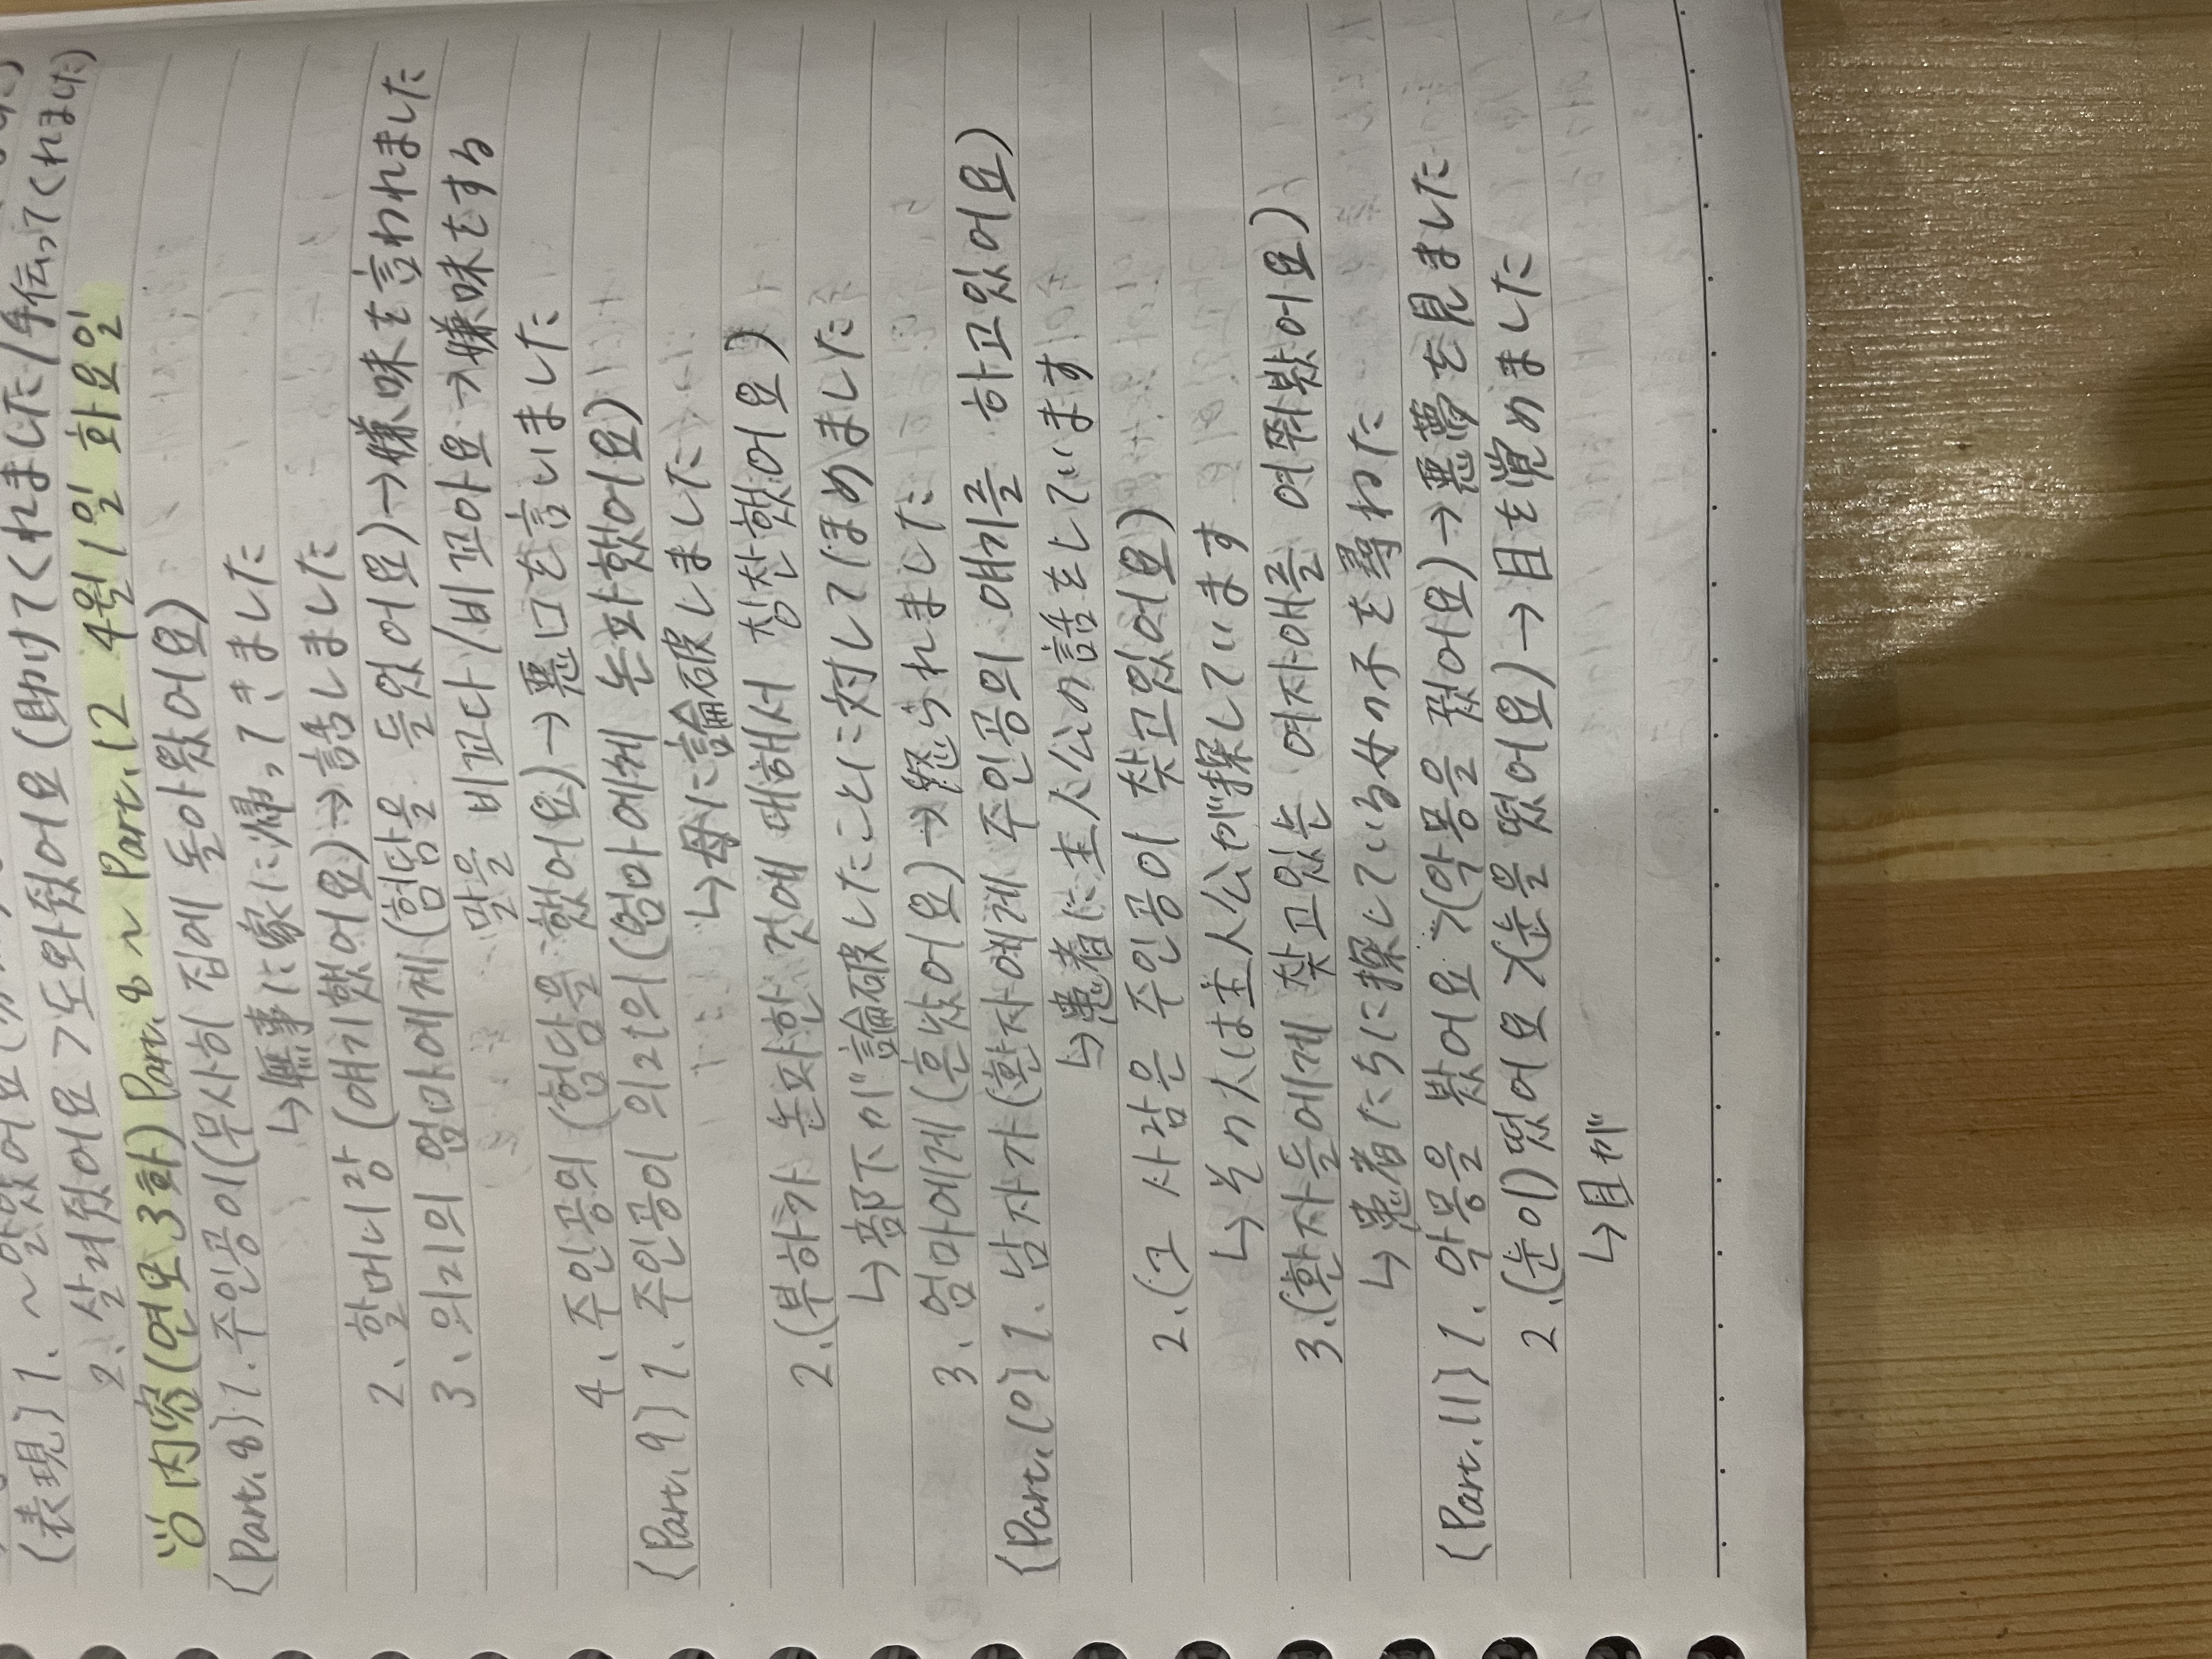 (表現) 1. ~았었어요
2. 살려줬어요 > 도와줬어요 (助けてくれました/手伝ってくれました)
내용 内容 (연모 3화) Part.8 ~ Part.12 4월 1일 화요일
(Part.8) 1. 주인공이 (무사히 집에 돌아왔어요)
↳ 無事に家に帰ってきました
2. 할머니랑 (얘기했어요) → 話しました
3. 의괴의 엄마에게 (험담을 들었어요) → 嫌味を言われました
말을 비꼬다/비꼬아요 → 嫌味をする
4. 주인공의 (험담을 했어요) → 悪口を言いました
(Part.9) 1. 주인공이 의괴의 (엄마에게 논파했어요)
↳ 母に論破しました
2. (부하가 논파한 것에 대해서 칭찬했어요)
↳ 部下が論破したことに対してほめました
3. 엄마에게 (혼났어요) → 怒られました
(Part.10) 1. 남자가 (환자에게 주인공의 얘기를 하고있어요)
↳ 患者に主人公の話をしています
2. (그 사람은 주인공이 찾고있어요)
↳ その人は主人公が探しています
3. (환자들에게 찾고있는 여자애를 여쭤봤어요)
↳ 患者たちに探している女の子を尋ねた
(Part.11) 1. 악몽을 봤어요 > (악몽을 꿨어요) → 悪夢を見ました
2. (눈이) 떴어요 > (눈을 떴어요) → 目を覚めました
↳ 目が